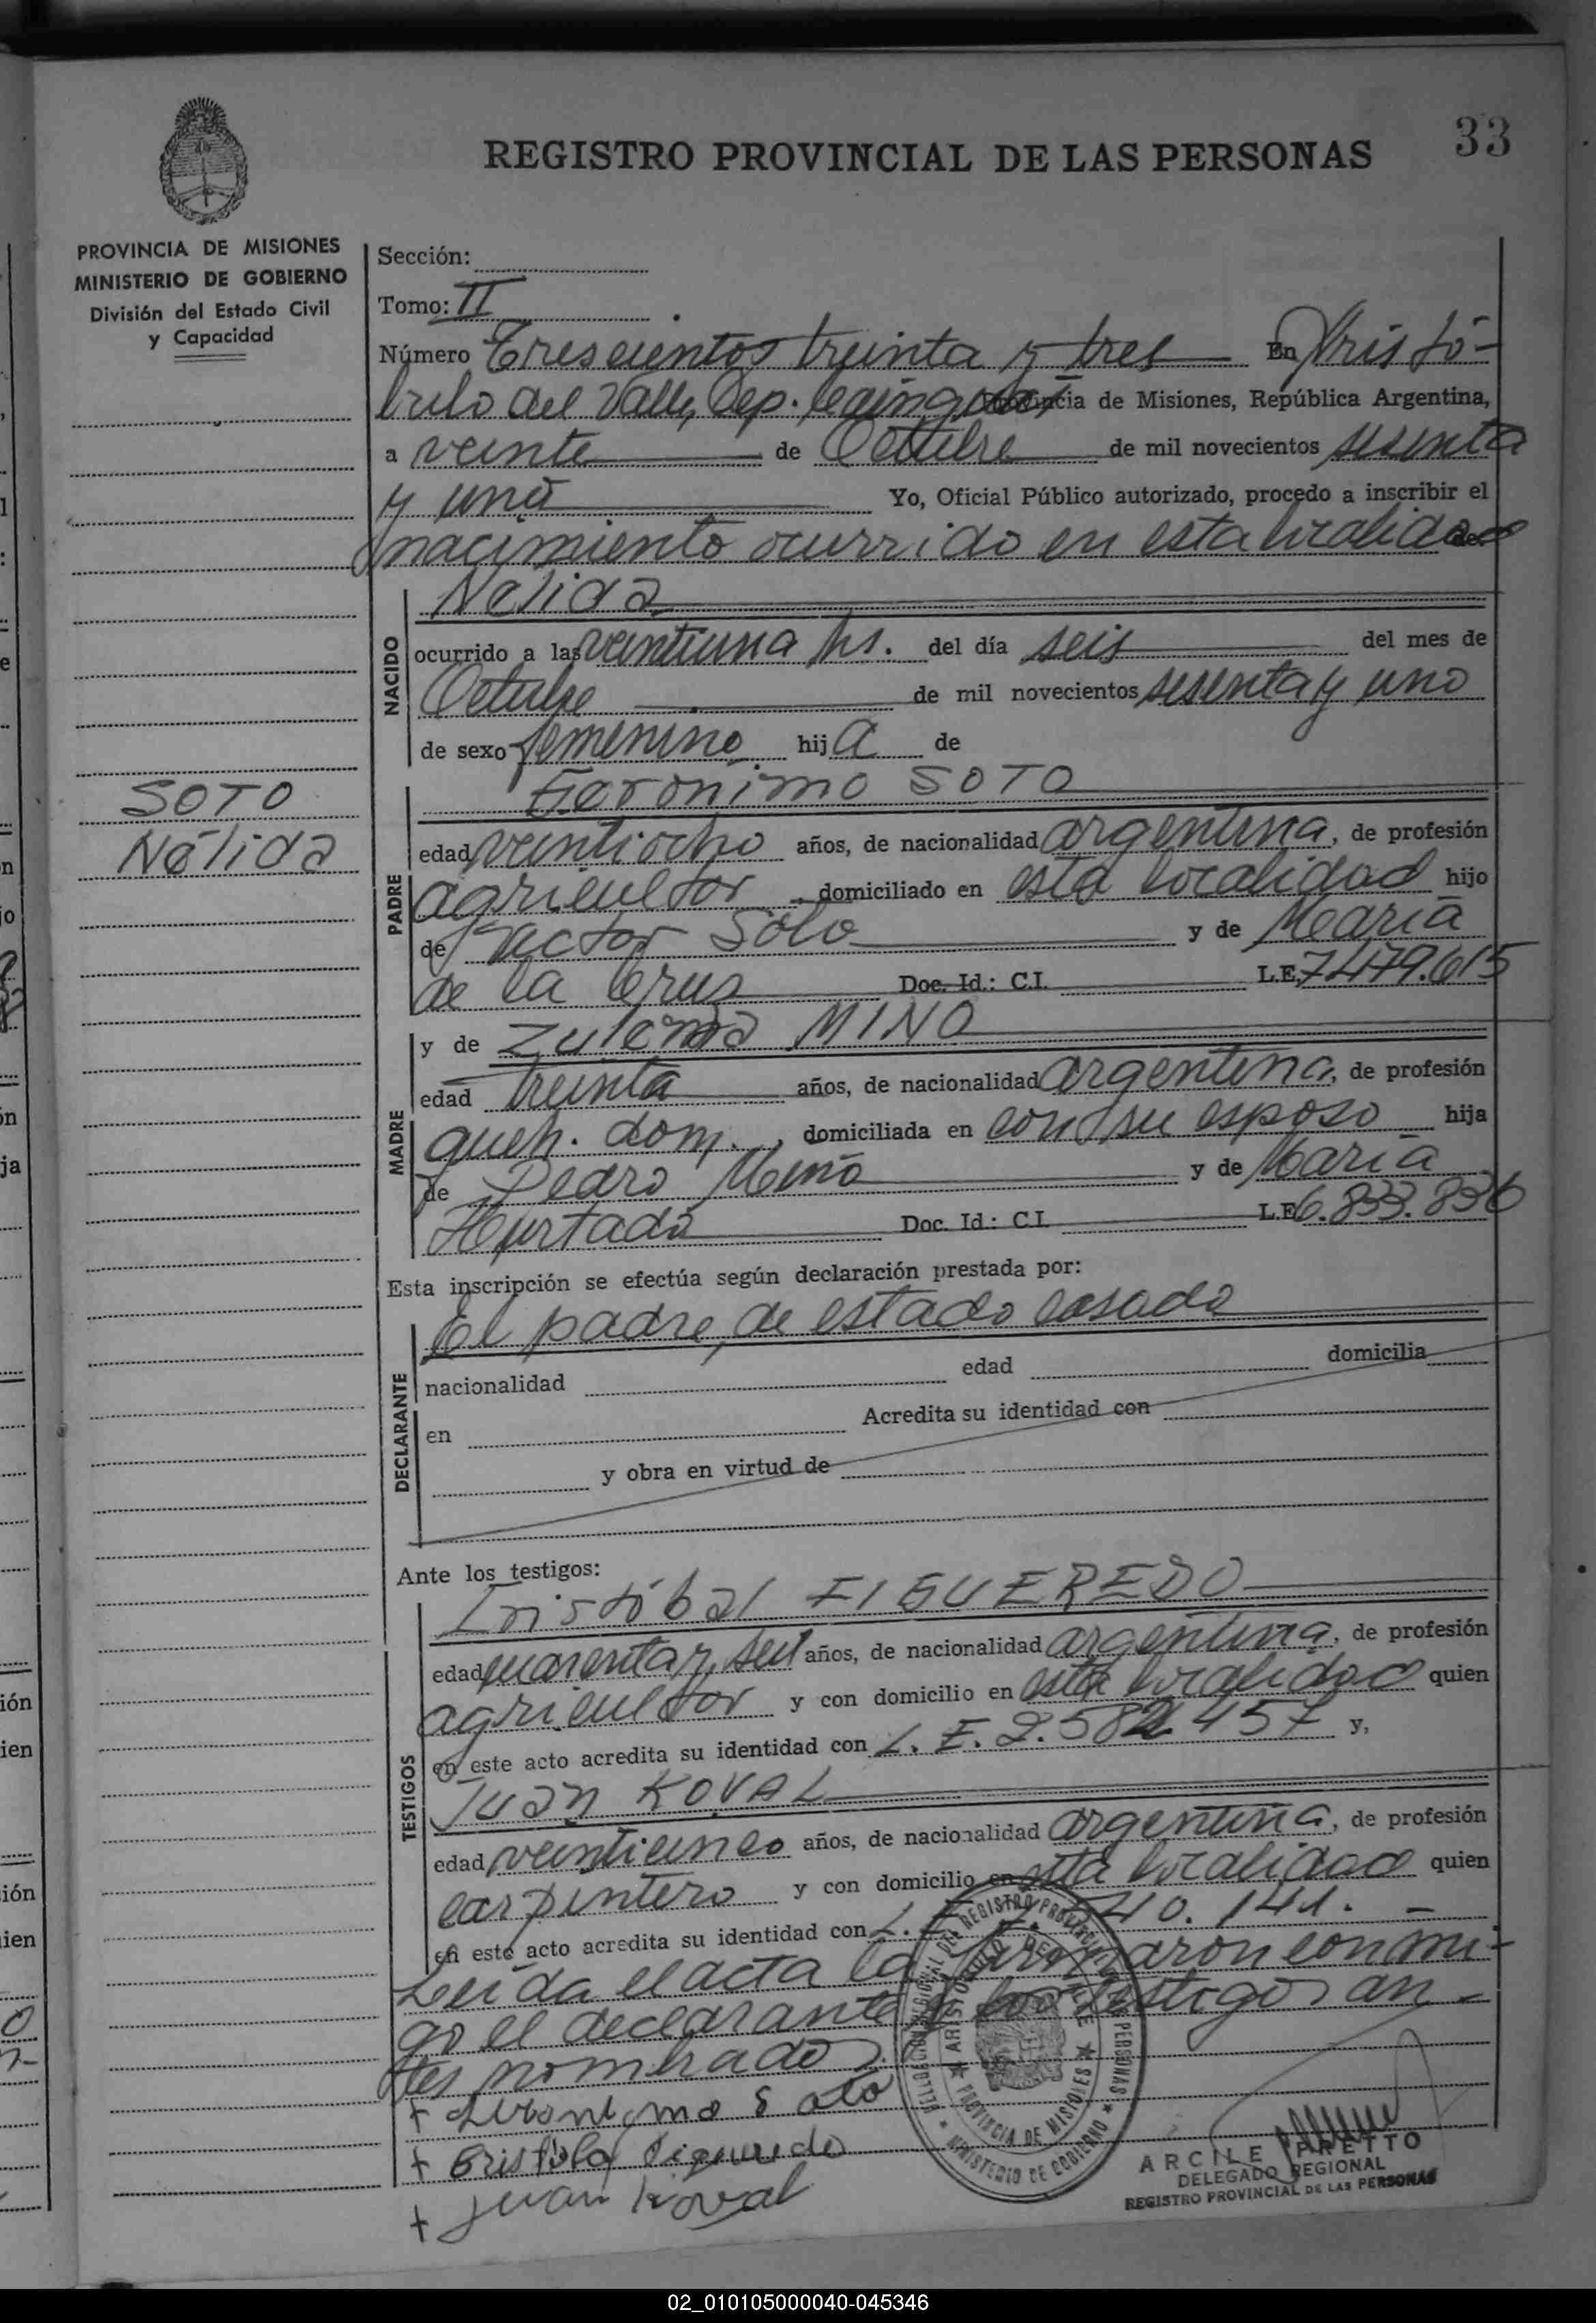 33
REGISTRO PROVINCIAL DE LAS PERSONAS
PROVINCIA DE MISIONES
MINISTERIO DE GOBIERNO
División del Estado Civil
y Capacidad
SOTO
Nélida
Sección:
Tomo: II
Número Trescientos treinta y tres En Aristó-
bulo del Valle, Dep. Caínguás Provincia de Misiones, República Argentina,
a veinte de Octubre de mil novecientos sesenta
y uno Yo, Oficial Público autorizado, procedo a inscribir el
nacimiento ocurrido en esta localidad de:
NACIDO
Nélida
ocurrido a las veintiuna hs. del día seis del mes de
Octubre de mil novecientos sesenta y uno
de sexo femenino hija de
PADRE
Gerónimo SOTO
edad veintiocho años, de nacionalidad argentina, de profesión
agricultor, domiciliado en esta localidad hijo
de Victor Soto y de María
de la Cruz Doc. Id.: C.I. L.E. 7479.615
MADRE
y de Zulema MINO
edad treinta años, de nacionalidad argentina, de profesión
queh. dom., domiciliada en con su esposo hija
de Pedro Mino y de María
Hurtado Doc. Id.: C.I. L.E. 6.833.836
Esta inscripción se efectúa según declaración prestada por:
DECLARANTE
El padre, de estado casado
nacionalidad edad domicilia
en Acredita su identidad con
y obra en virtud de
Ante los testigos:
TESTIGOS
Cristóbal FIGUEREDO
edad cuarenta y seis años, de nacionalidad argentina, de profesión
agricultor y con domicilio en esta localidad quien
en este acto acredita su identidad con L. E. 2.582 457 y,
Juan KOVAL
edad veinticinco años, de nacionalidad argentina, de profesión
carpintero y con domicilio en esta localidad quien
en este acto acredita su identidad con L. E. 540. 141. -
Leída el acta la firmaron conmi-
go el declarante y los testigos an-
tes nombrados.
+ Geronimo Soto
+ Cristobal Figueredo
+ Juan Koval
DELEGACION REGIONAL DEL REGISTRO PROVINCIAL DE LAS PERSONAS
ARISTOBULO DEL VALLE
PROVINCIA DE MISIONES
MINISTERIO DE GOBIERNO
ARCILE PRETTO
DELEGADO REGIONAL
REGISTRO PROVINCIAL DE LAS PERSONAS
02_010105000040-045346